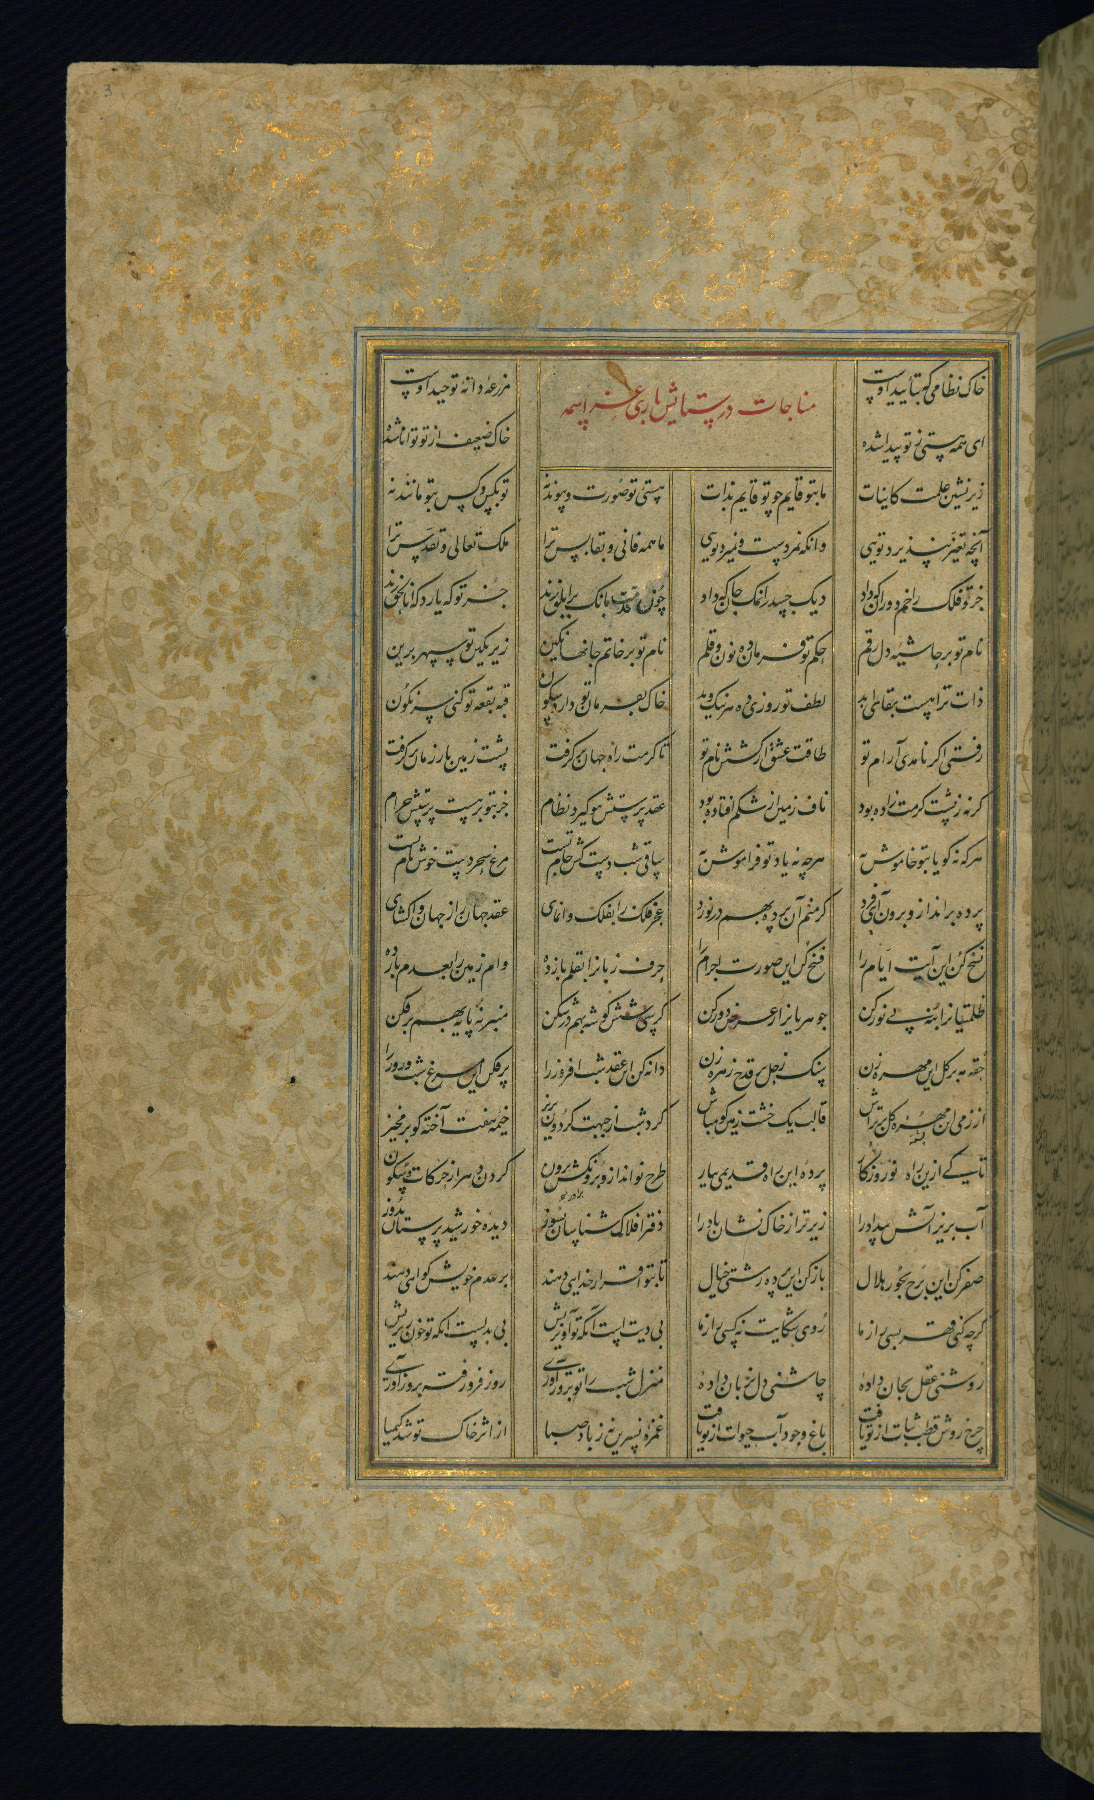 3
خاک نظامی که بتایید اوست
مزرعهٔ دانهٔ توحید اوست
مناجات در ستایش باری عز اسمه
ای همه هستی ز تو پیدا شده
خاک ضعیف از تو توانا شده
زیرنشین علمت کاینات
ما بتو قایم چو تو قایم بذات
هستی تو صورت و پیوند نه
تو بکس و کس بتو مانند نه
آنچه تغیر نپذیرد تویی
وانکه نمردست و نمیرد تویی
ما همه فانی و بقا بس ترا
ملک تعالی و تقدس ترا
جز تو فلک را خم دوران که داد
دیک جسد را نمک جان که داد
چون قدمت بانک بر ابلق زند
جز تو که یارد که انا الحق زند
نام تو بر حاشیه دل رقم
حکم تو فرمان ده نون و قلم
نام تو بر خاتم جانها نکین
زیر نکین تو سپهر برین
ذات ترا هست بقای ابد
لطف تو روزی ده هر نیک و بد
خاک بفرمان تو دارد سکون
قبه بقعه تو کنی سرنکون
رفتی اکر نامدی آرام تو
طاقت عشق از کشش نام تو
تا کرمت راه جهان برکرفت
پشت زمین بار زمان برکرفت
کرنه ز پشت کرمت زاده بود
ناف زمین از شکم افتاده بود
عقد پرستش ز تو کیرد نظام
جز بتو بر هست پرستش حرام
هر که نه کویا بتو خاموش به
هر چه نه یاد تو فراموش به
ساقی شب دست کش جام تست
مرغ سحر دست خوش نام تست
پرده برانداز و برون آی فرد
کر منم آن پرده بهم در نورد
عجز فلک را بفلک وانمای
عقد جهان را ز جهان واکشای
نسخ کن این آیت ایام را
فسخ کن این صورت اجرام را
حرف زبانرا بقلم بازده
وام زمین را بعدم بازده
ظلمتیانرا بنه بی نور کن
جوهریانرا ز عرض دور کن
کرسی شش کوشه بهم درشکن
منبر نه پایه بهم برفکن
حقه مه بر کل این مهره زن
سنک زحل بر قدح زهره زن
دانه کن این عقد شب افروز را
پر فکن این مرغ شب و روز را
از زمی این مهره کل بر تراش
قالب یک خشت زمین کو مباش
کرد شب از جبهت کردون بریز
خیمه هفت آخته کو بر مخیز
تا کی ازین راه نو روزکار
پرده این راه قدیمی بیار
طرح نو انداز و برون کش برون
کردن از حرکات و سکون
آب بریز آتش بیداد را
زیرتر از خاک نشان باد را
دفتر افلاک شناسان بسوز
دیده خورشید پرستان بدوز
صفر کن این برج بجور هلال
باز کن این پرده ز مشتی خیال
تا بتو اقرار خدایی دهند
بر عدم خویش کواهی دهند
کرچه کنی قهر بسی را ز ما
روی شکایت نه کسی را ز ما
بی دیت است آنکه تو آویزیش
بی بدلست آنکه تو خون ریزیش
روشنی عقل بجان دادهٔ
چاشنی دل بزبان دادهٔ
منزل شب را تو آوری
روز فرو رفته بروز آوری
چرخ روش قطب ثبات از تو یافت
باغ وجود آب حیوات از تو یافت
غمزه نسرین نه ز باد صبا
از اثر خاک تو شد کیمیا